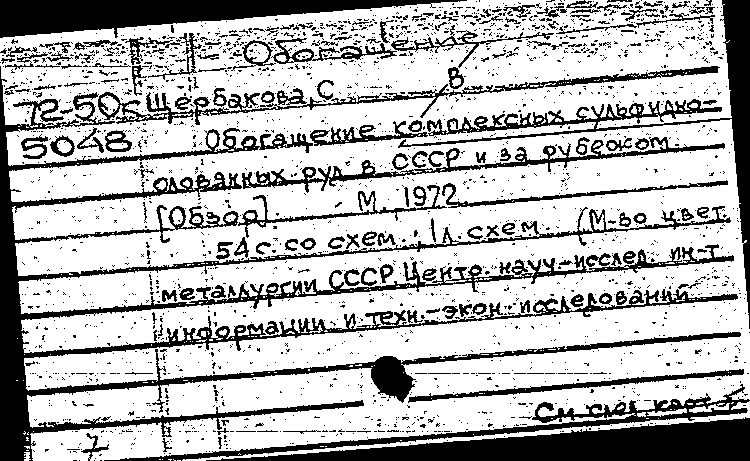 Обогащение
В
72-50с Щербакова, С
5048 Обогащение комплексных сульфидно-
олованных руд в СССР и за рубежом.
[Обзор]. М., 1972.
54 с. со схем.; 1 л. схем. (М-во цвет.
металлургии СССР. Центр. науч.-исслед. ин-т
информации и техн.-экон. исследований
См. след. карт.